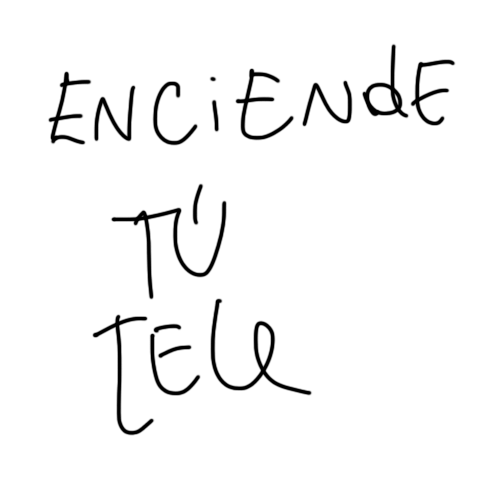 ENCiENdE
TÚ
TELe